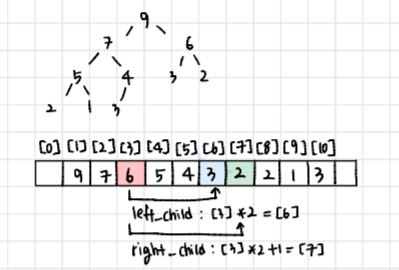 9
7 6
5 4 3 2
2 1 3
[0] [1] [2] [3] [4] [5] [6] [7] [8] [9] [10]
9 7 6 5 4 3 2 2 1 3
left_child : [3] * 2 = [6]
right_child : [3] * 2 + 1 = [7]